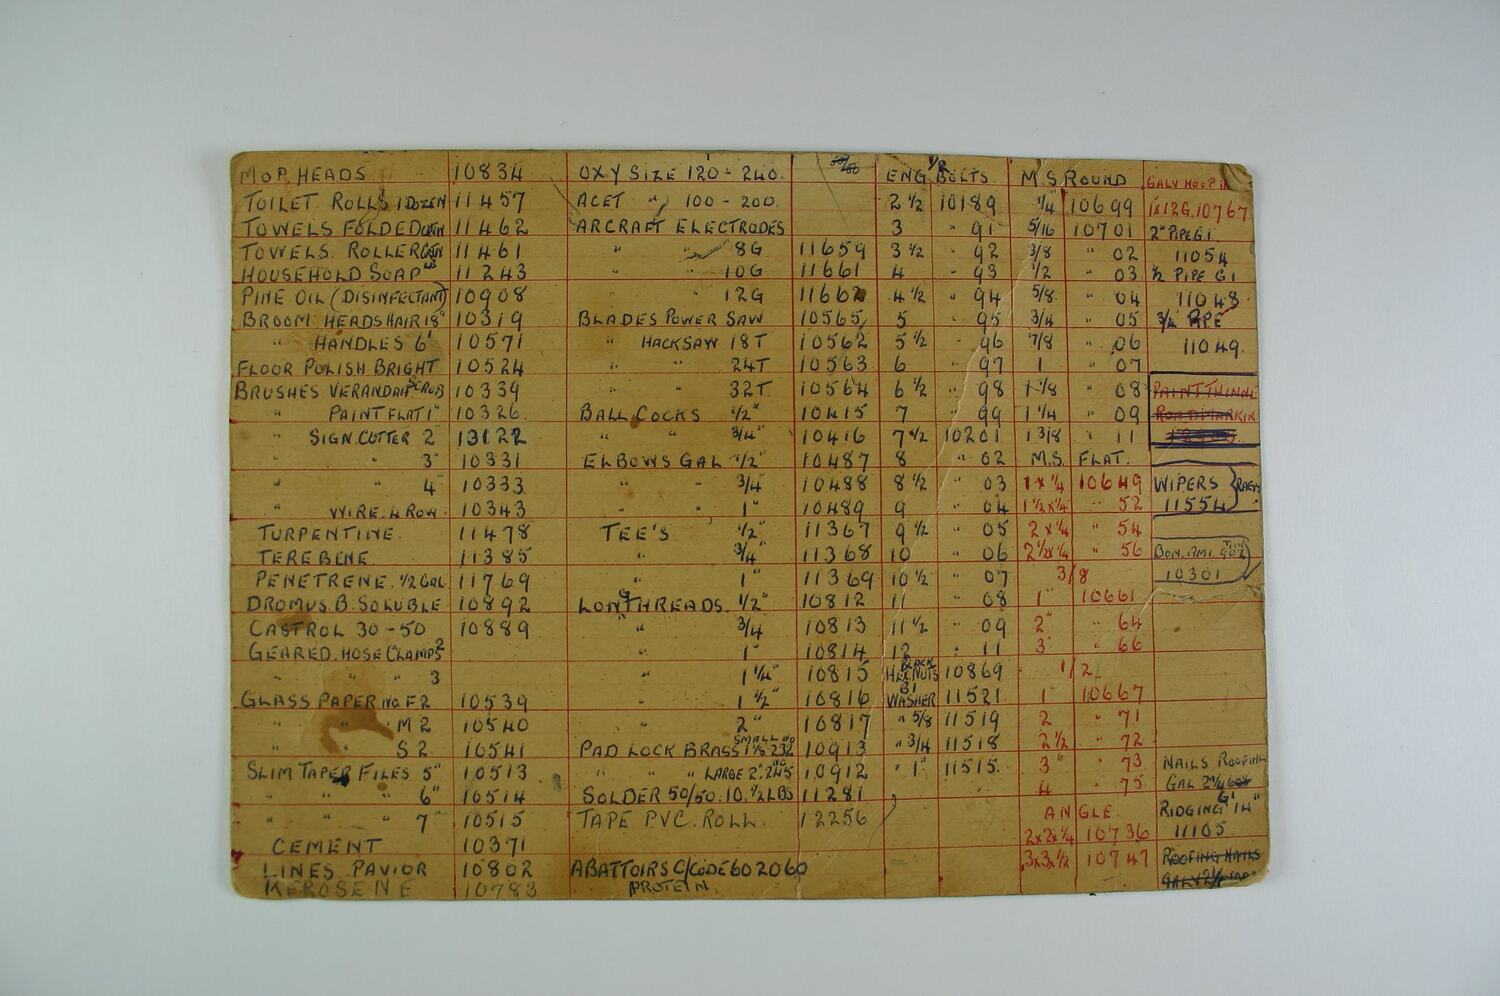 MOP HEADS 10834 OXY SIZE 120-240. ENG 1/2 BOLTS. M.S. ROUND GALV HOOP
TOILET ROLLS 1 DOZEN 11457 ACET " 100-200. 2 1/2 10189 1/4" 10699 1x12G.10767
TOWELS FOLDED 11462 ARCRAFT ELECTRODES 3 " 91 5/16 10701 2" PIPE G.I.
TOWELS. ROLLER 11461 " " 8G 11659 3 1/2 " 92 3/8 " 02 11054
HOUSEHOLD SOAP 11243 " " 10G 11661 4 " 93 1/2 " 03 1/2 PIPE G.I
PINE OIL (DISINFECTANT) 10908 " 12G 11662 4 1/2 " 94 5/8 " 04 11048
BROOM HEADS HAIR 18" 10319 BLADES POWER SAW 10565 5 " 95 3/4 " 05 3/4 PIPE
" HANDLES 6' 10571 " HACKSAW 18T 10562 5 1/2 " 96 7/8 " 06 11049
FLOOR POLISH BRIGHT 10524 " " 24T 10563 6 " 97 1 " 07
BRUSHES VERANDAH SCRUB 10339 " " 32T 10564 6 1/2 " 98 1 1/8 " 08 PAINT THINN
" PAINT FLAT 1" 10326 BALL COCKS 1/2" 10415 7 " 99 1 1/4 " 09 ROADMARKIN
" SIGN. CUTTER 2" 13122 " " 3/4" 10416 7 1/2 10201 1 3/8 " 11
" " 3" 10331 ELBOWS GAL 1/2" 10487 8 " 02 M.S. FLAT.
" " 4" 10333 " " 3/4" 10488 8 1/2 " 03 1 x 1/4 10649 WIPERS (RAGS)
" WIRE. 4 ROW. 10343 " " 1" 10489 9 " 04 1 1/2 x 1/4 " 52 11554
TURPENTINE. 11478 TEE'S 1/2" 11367 9 1/2 " 05 2 x 1/4 " 54
TEREBENE 11385 " 3/4" 11368 10 " 06 2 1/2 x 1/4 " 56
PENETRENE. 1/2 GAL 11769 " 1" 11369 10 1/2 " 07 3/8 10301
DROMUS. B. SOLUBLE 10892 LONGTHREADS. 1/2" 10812 11 " 08 1" 10661
CASTROL 30-50 10889 " 3/4 10813 11 1/2 " 09 2" " 64
GEARED. HOSE CLAMPS 2 " 1" 10814 12 " 11 3" " 66
" " " 3 " 1 1/4" 10815 BLACK HEX NUTS 10869 1/2
GLASS PAPER NO. F2 10539 " 1 1/2" 10816 WASHER 11521 1" 10667
" " M2 10540 " 2" 10817 " 5/8 11519 2 " 71
" " S2 10541 PAD LOCK BRASS SMALL NO 1 1/2 232 10913 " 3/4 11518 2 1/2 " 72
SLIM TAPER FILES 5" 10513 " " " LARGE 2" NO 245 10912 " 1" 11515 3" " 73 NAILS ROOFING
" " " 6" 10514 SOLDER 50/50. 10. 1/2 LBS 11281 4 " 75 GAL 2 1/4
" " " 7" 10515 TAPE PVC. ROLL. 12256 ANGLE RIDGING G.I 14"
CEMENT 10371 2x2x1/4 10736 11105
LINES PAVIOR 10802 ABATTOIRS C/CODE 602060 3x3x1/2 10747 ROOFING NAILS
KEROSENE 10783 PROTEIN.